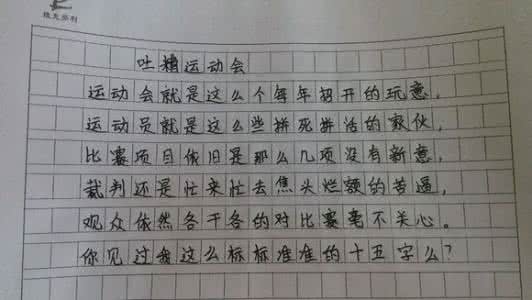 吐糟运动会
运动会就是这么个每年招开的玩意,
运动员就是这么些拼死拼活的家伙,
比赛项目依旧是那么几项没有新意,
裁判还是忙来忙去焦头烂额的苦逼,
观众依然各干各的对比赛毫不关心。
你见过我这么标标准准的十五字么?